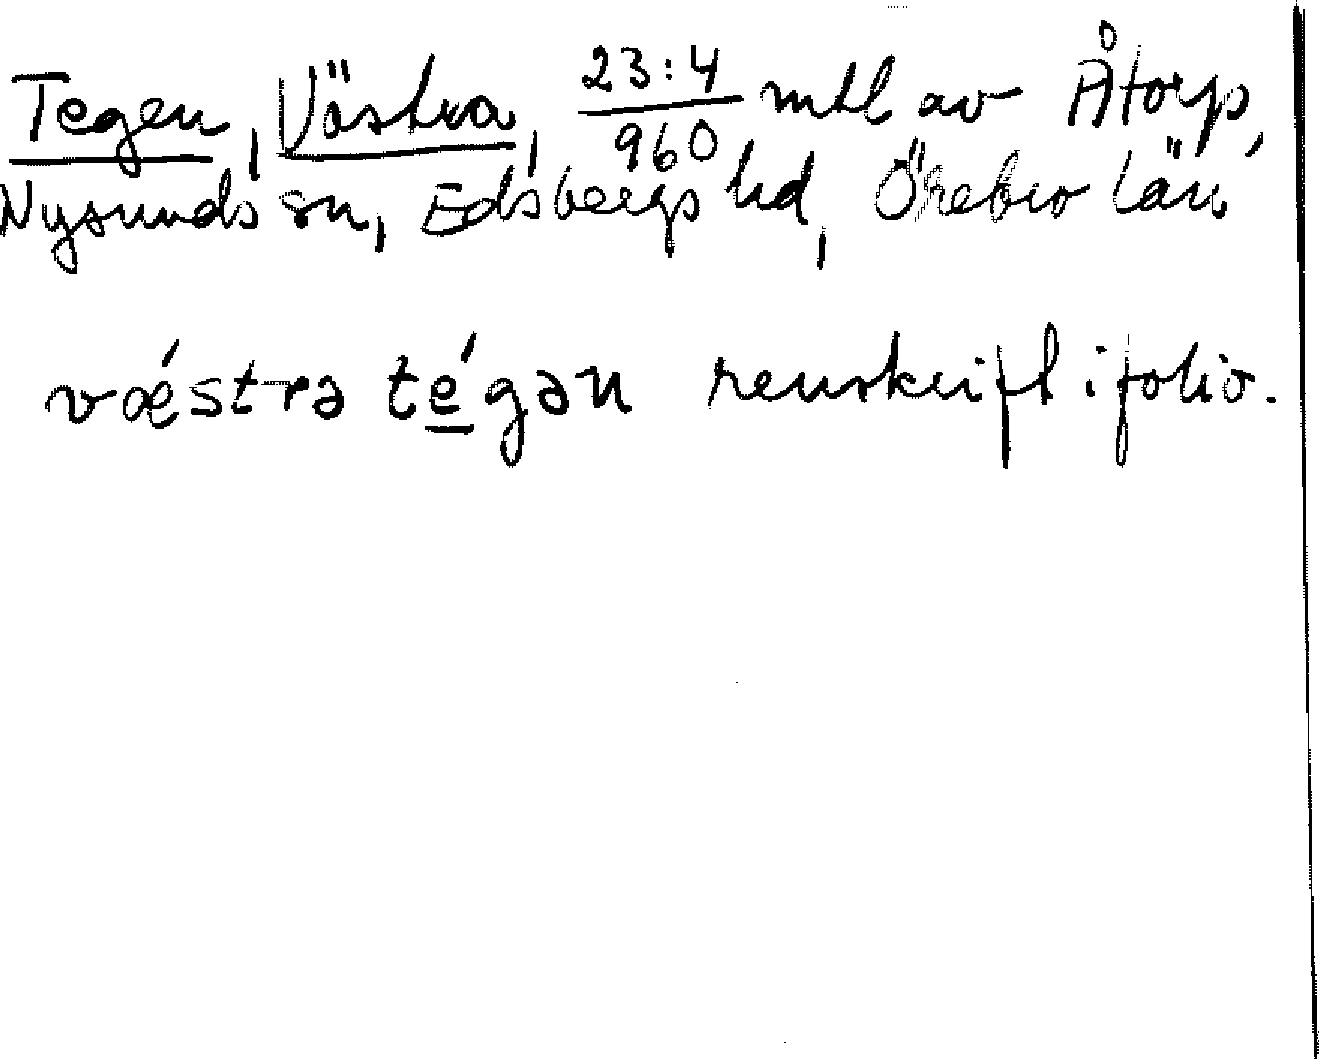 Tegen, Västra, 23:4/960 mtl av Åtorp,
Nysunds sn, Edsbergs hd, Örebro län
væ´stra te̲´gən renskrift i folio.